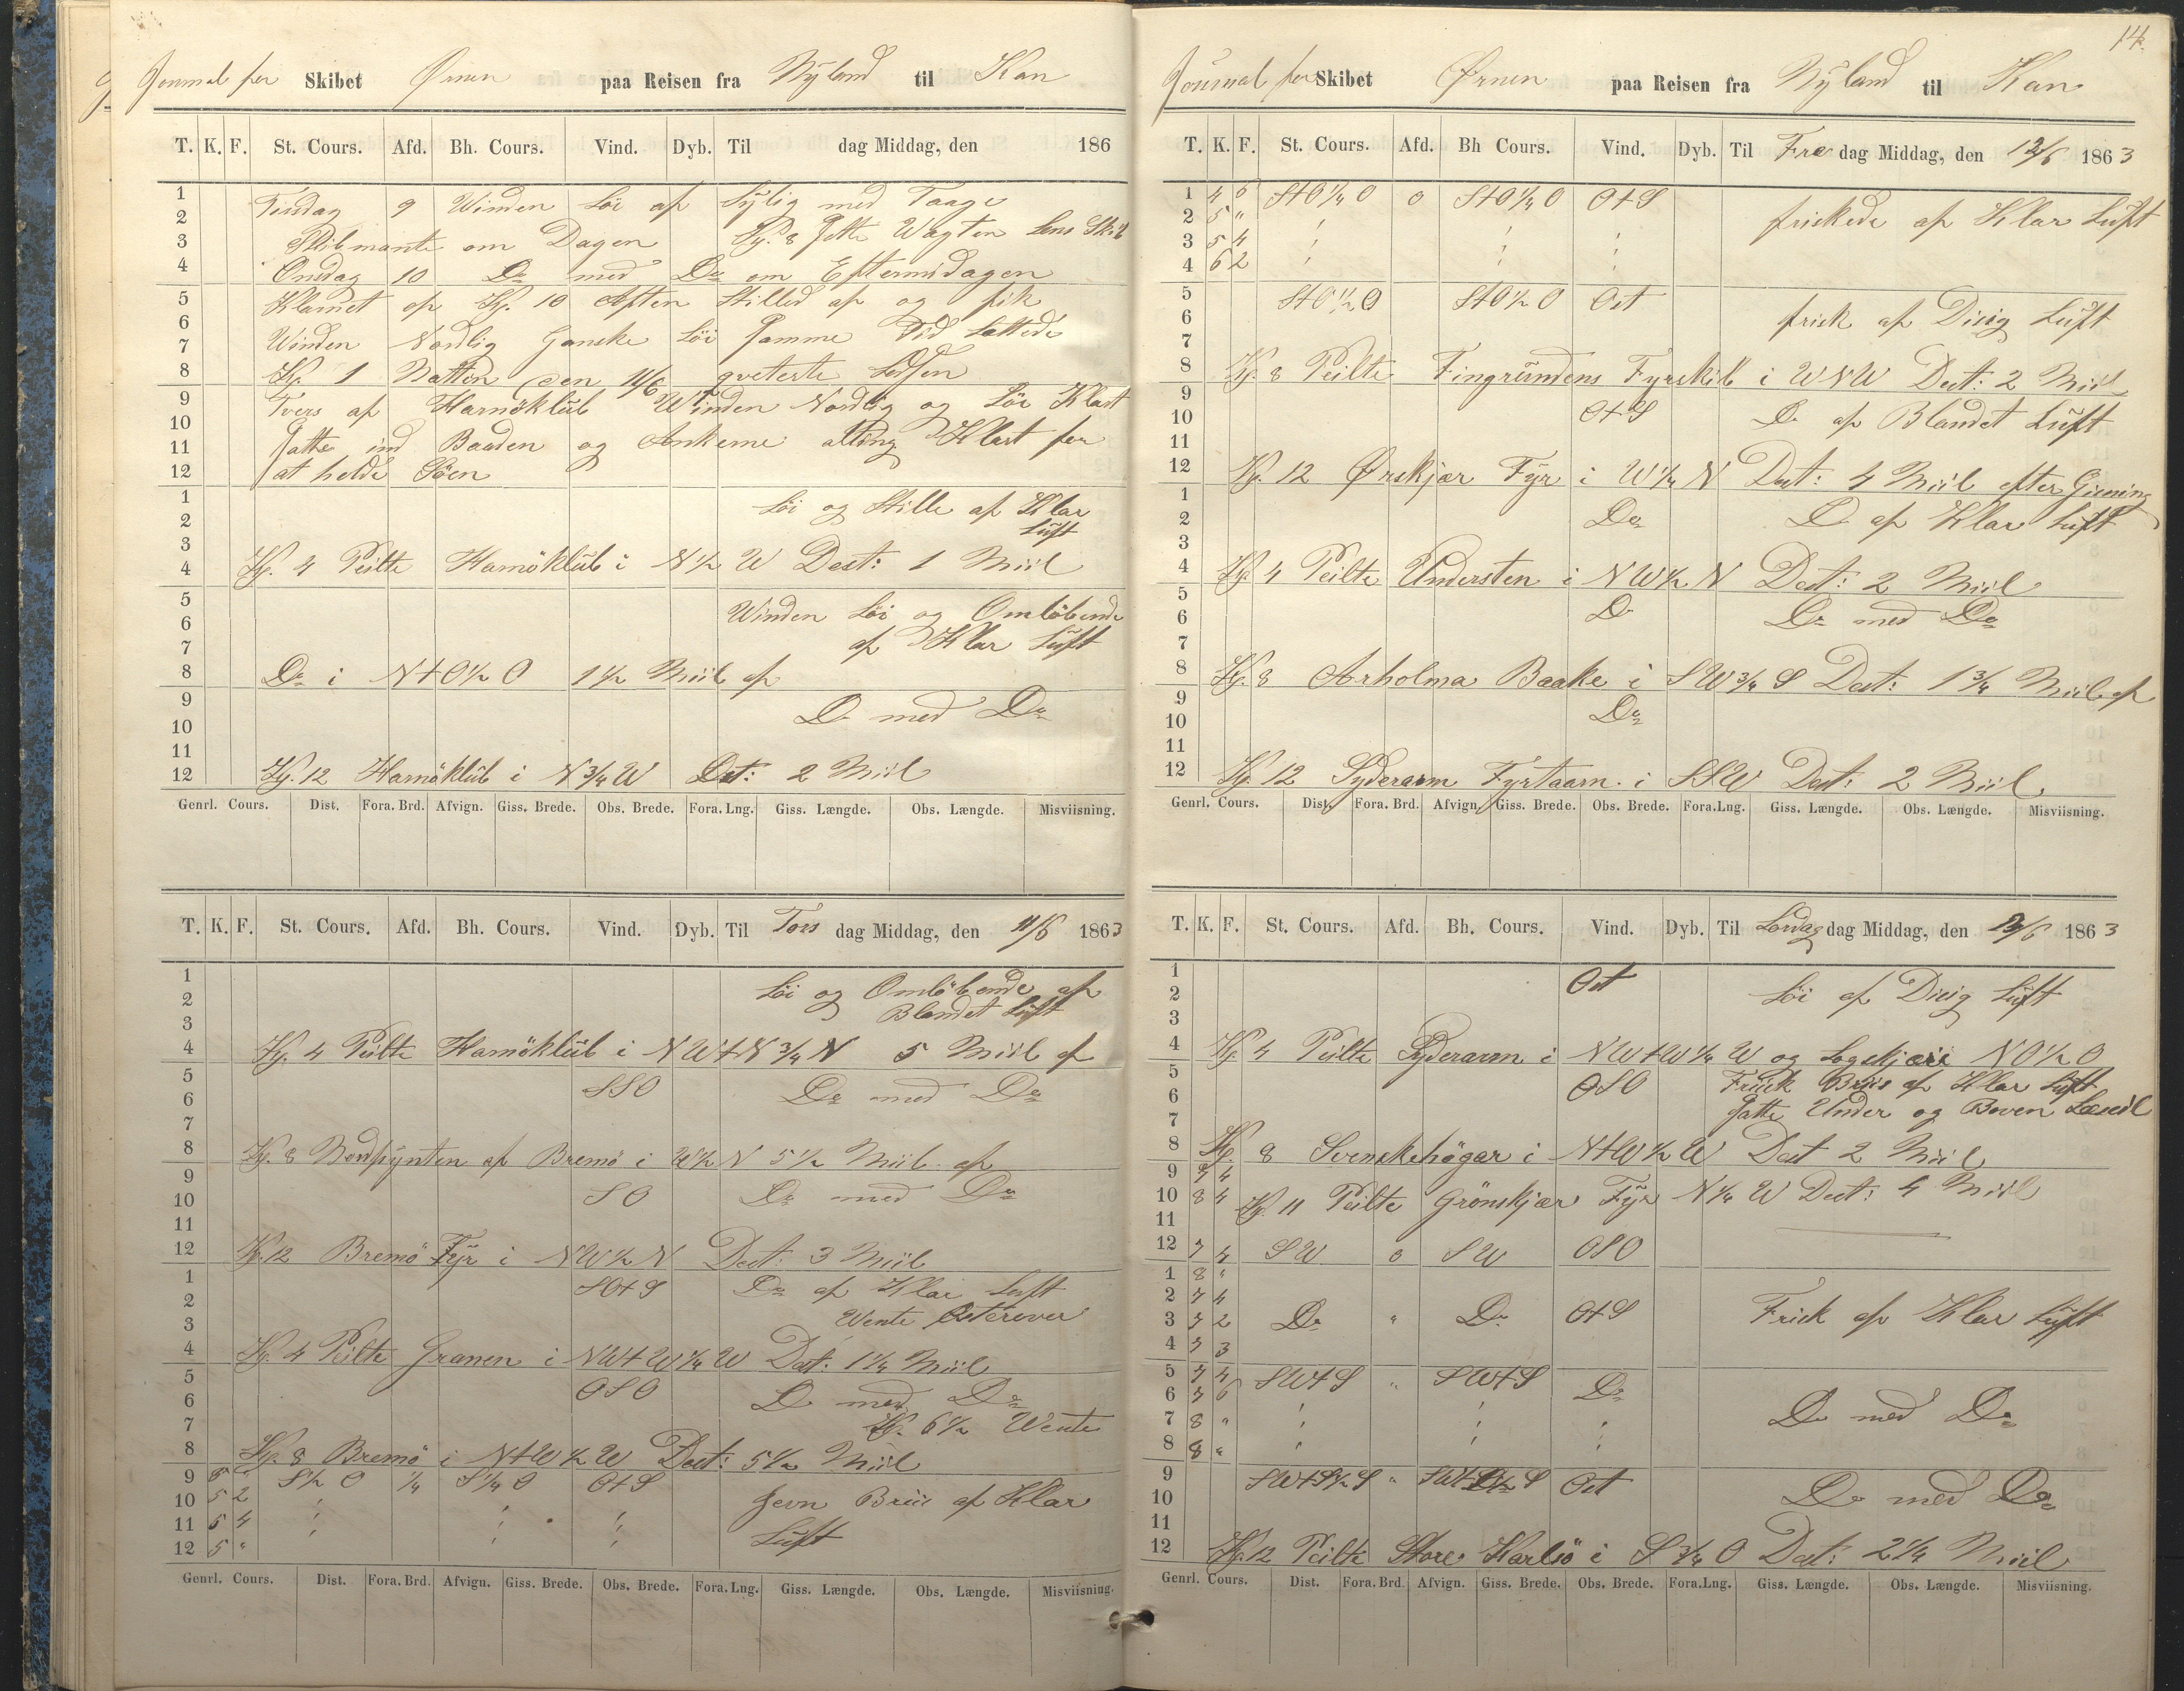 Journal for Skibet Ørnen paa Reisen fra Nyland til Kan
T. K. F. St. Cours. Afd. Bh. Cours. Vind. Dyb. Til dag Middag, den 186
1 Tirsdag 9 Winden Löi af Sylig med Taage
2
3 Skibmante om Dagen Kl. 8 satte Wagten Lens Skib
4 Onsdag 10 Do med Do om Eftermidagen
5 Klarnet op Kl. 10 Aften Stilled af og fik
6
7 Winden Nordlig Ganske Löi samme Tid Lettede
8 Kl. 1 Natten den 11/6 qveterte Lodsen
9 Tvers af Harnöklub Winden Nordlig og Löi Klart
10
11 satte ind Baaden og Ankerne alting Klart for
12 at holde Söen
1 Löi og Stille af Klar
2 Luft
3
4 Kl. 4 Peilte Harnöklub i N 1/2 W Dest: 1 Miil
5 Winden Löi og Omlöbende
6
7 af Klar Luft
8 Do i N+O 1/2 O 1 1/2 Miil af
9 Do med Do
10
11
12 Kl. 12 Harnöklub i N 3/4 W Dest: 2 Miil
Genrl. Cours. Dist. Fora. Brd. Afvign. Giss. Brede. Obs. Brede. Fora. Lng. Giss. Længde. Obs. Længde. Misviisning.
T. K. F. St. Cours. Afd. Bh. Cours. Vind. Dyb. Til Tors dag Middag, den 11/6 1863
1 Löi og Omlöbende af
2 Blandet Luft
3
4 Kl. 4 Peilte Harnöklub i NW+N 3/4 N 5 Miil af
5 SSO Do med Do
6
7
8 Kl. 8 Nordpynten af Bremö i W 1/2 N 5 1/2 Miil af
9 SO Do med Do
10
11
12 Kl. 12 Bremö Fyr i NW 1/2 N Dest: 3 Miil
1 SO+S Do af Klar Luft
2 Wente Østerover
3
4 Kl. 4 Peilte Granen i NW+W 1/4 W Dest: 1 1/4 Miil
5 OSO Do med Do
6
7 Kl. 6 1/2 Wente
8 Kl. 8 Bremö i N+W 1/2 W Dest: 5 1/2 Miil
9 S 1/2 O 1/4 S 1/4 O O+S
10 5 2 Jevn Briis af Klar
11 5 4 Luft
12 5 "
Genrl. Cours. Dist. Fora. Brd. Afvign. Giss. Brede. Obs. Brede. Fora. Lng. Giss. Længde. Obs. Længde. Misviisning.
14.
Journal for Skibet Ørnen paa Reisen fra Nyland til Kan
T. K. F. St. Cours. Afd. Bh Cours. Vind. Dyb. Til Fre dag Middag, den 12/6 1863
1 4 6 S+O 1/4 O o S+O 1/4 O O+S
2 5 " friskede af Klar Luft
3 5 4
4 6 2
5 S+O 1/2 O S+O 1/2 O Ost
6 frisk af Disig Luft
7
8 Kl. 8 Peilte Fingrundens Fyrskib i WNW Dest: 2 Miil
9 O+S Do af Blandet Luft
10
11
12 Kl. 12 Ørskjær Fyr i W 1/4 N Dest: 4 Miil efter Gisning
1 Do Do af Klar Luft
2
3
4 Kl. 4 Peilte Understen i NW 1/2 N Dest: 2 Miil
5 Do Do med Do
6
7
8 Kl. 8 Arholma Baake i SW 3/4 S Dest: 1 3/4 Miil af
9 Do
10
11
12 Kl. 12 Syderarm Fyrtaarn i SSW Dest: 2 Miil
Genrl. Cours. Dist. Fora. Brd. Afvign. Giss. Brede. Obs. Brede. Fora. Lng. Giss. Længde. Obs. Længde. Misviisning.
T. K. F. St. Cours. Afd. Bh. Cours. Vind. Dyb. Til Lördag dag Middag, den 13/6 1863
1 Ost
2 Löi af Disig Luft
3
4 Kl. 4 Peilte Syderarm i NW+W 1/4 W og Logskjær NO 1/2 O
5 OSO Frisk Briis af Klar Luft
6 satte Under og Boven Læseil
7
8 Kl. 8 Svenskehögar i N+W 1/2 W Dest 2 Miil
9 7 4
10 8 4 Kl. 11 Peilte Grönskjær Fyr N 1/4 W Dest: 4 Miil
11
12 7 4 SW o SW OSO
1 8 "
2 7 4
3 7 2 Do " Do O+S Frisk af Klar Luft
4 7 3
5 7 4 SW+S " SW+S Do
6 7 6
7 8 " Do med Do
8 8 "
9 SW+S 1/2 S " SW+S 1/2 S Ost
10 Do med Do
11
12 Kl. 12 Peilte Store Karlsö i S 3/4 O Dest: 2 1/4 Miil
Genrl. Cours. Dist. Fora. Brd. Afvign. Giss. Brede. Obs. Brede. Fora. Lng. Giss. Længde. Obs. Længde. Misviisning.